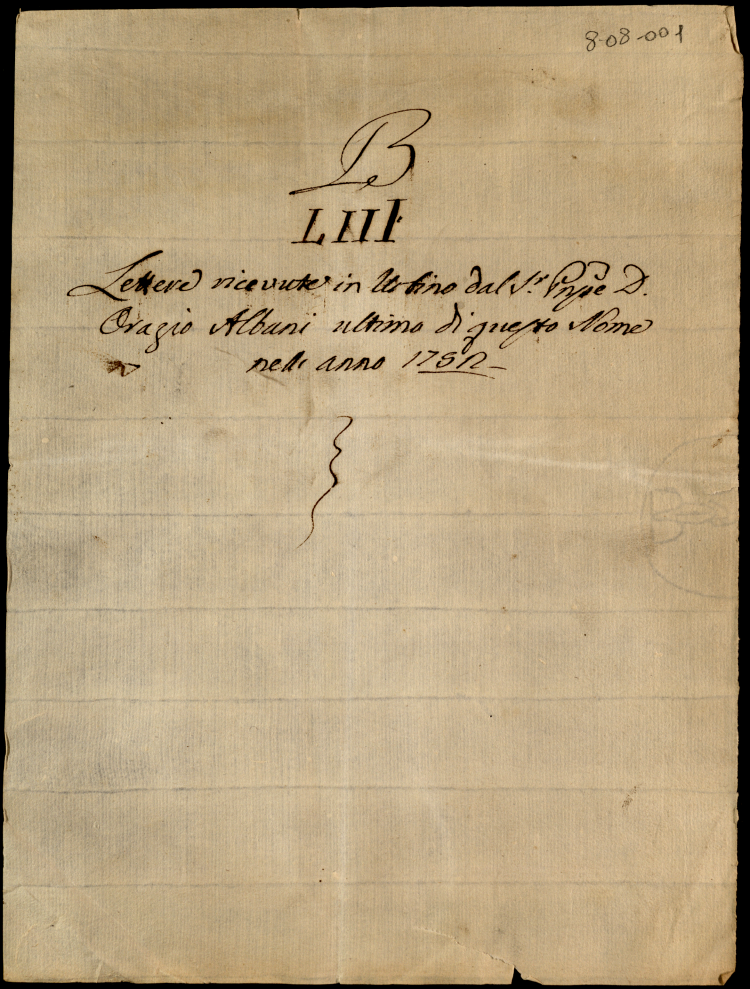 8-08-001
B
LIII
Lettere ricevute in Urbino dal S.r Pnpe D.
Orazio Albani ultimo di questo Nome
nell anno